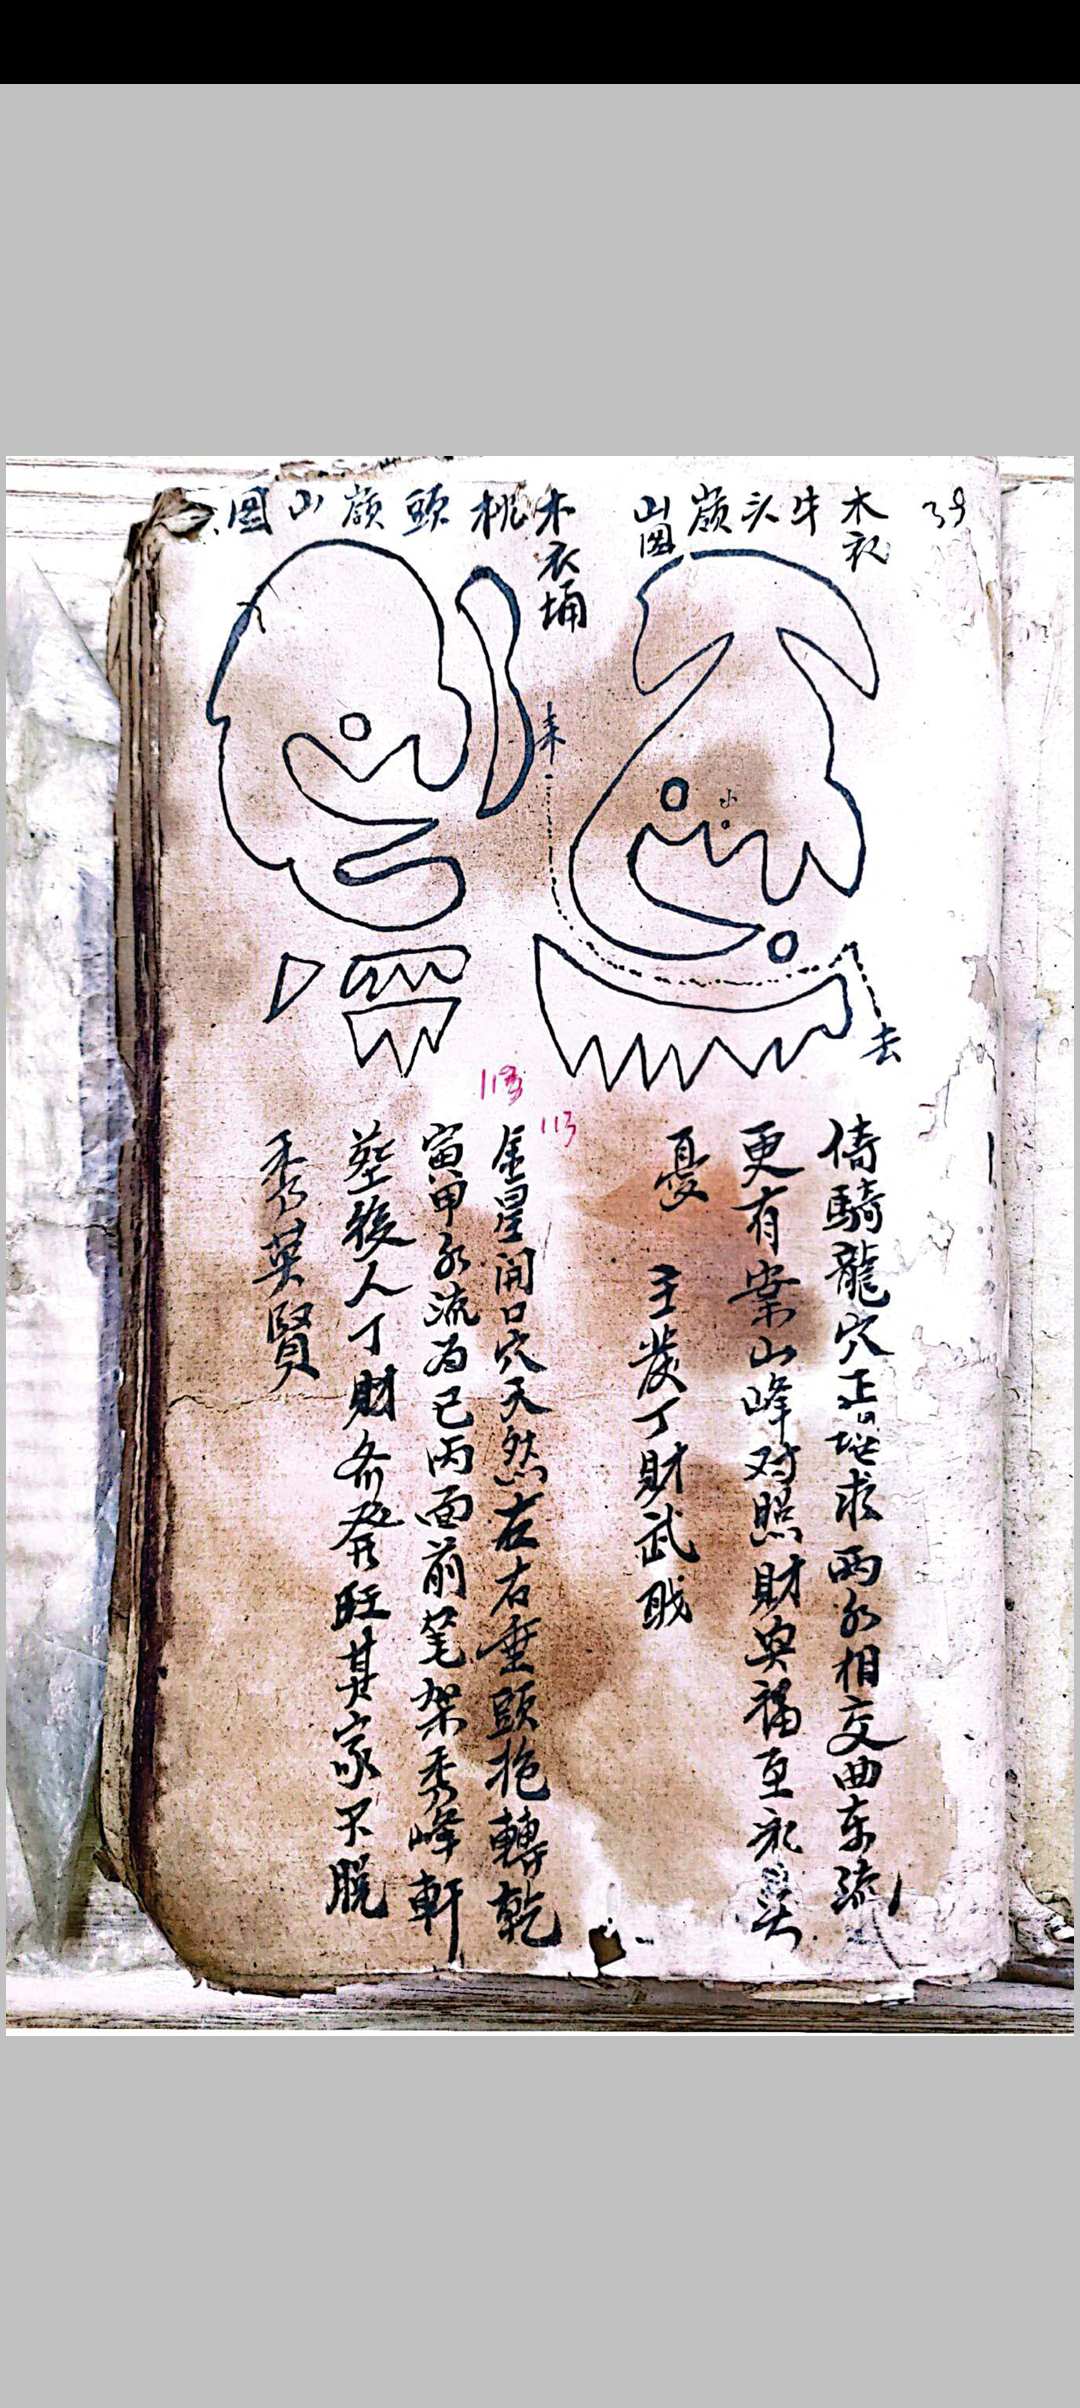 39
木衣
牛头嶺山図
木衣埇
桃頭嶺山图
来
小
去
113
113
倚騎龍穴正堪求两水相交曲东流
更有案山峰对照財與福至永
憂 主發丁財武職
金星開口穴天然左右垂頭抱轉乾
寅甲水流为巳丙面前笔架秀峰軒
葬後人丁財齐發旺其家不脱
秀乃英賢